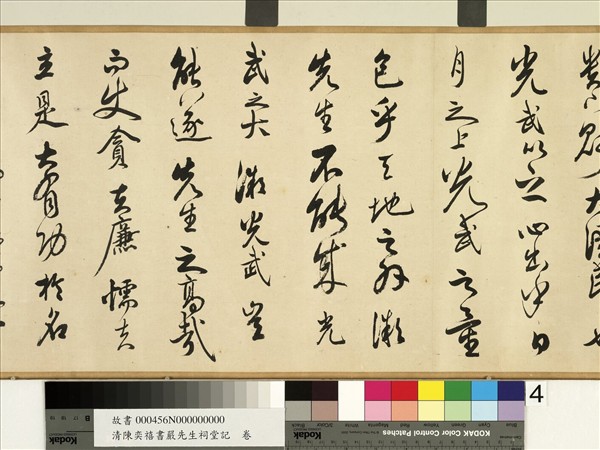 貴下賤大得民也
光武以之心出乎日
月之上光武之量
包乎天地之外微
先生不能成光
武之大微光武豈
能遂先生之高哉
而使貪夫廉懦夫
立是大有功於名
4
故書 000456N000000000
清陳奕禧書嚴先生祠堂記 卷
Kodak
KODAK Color Control Patches
Blue Cyan Green Yellow Red Magenta White 3/Color Black